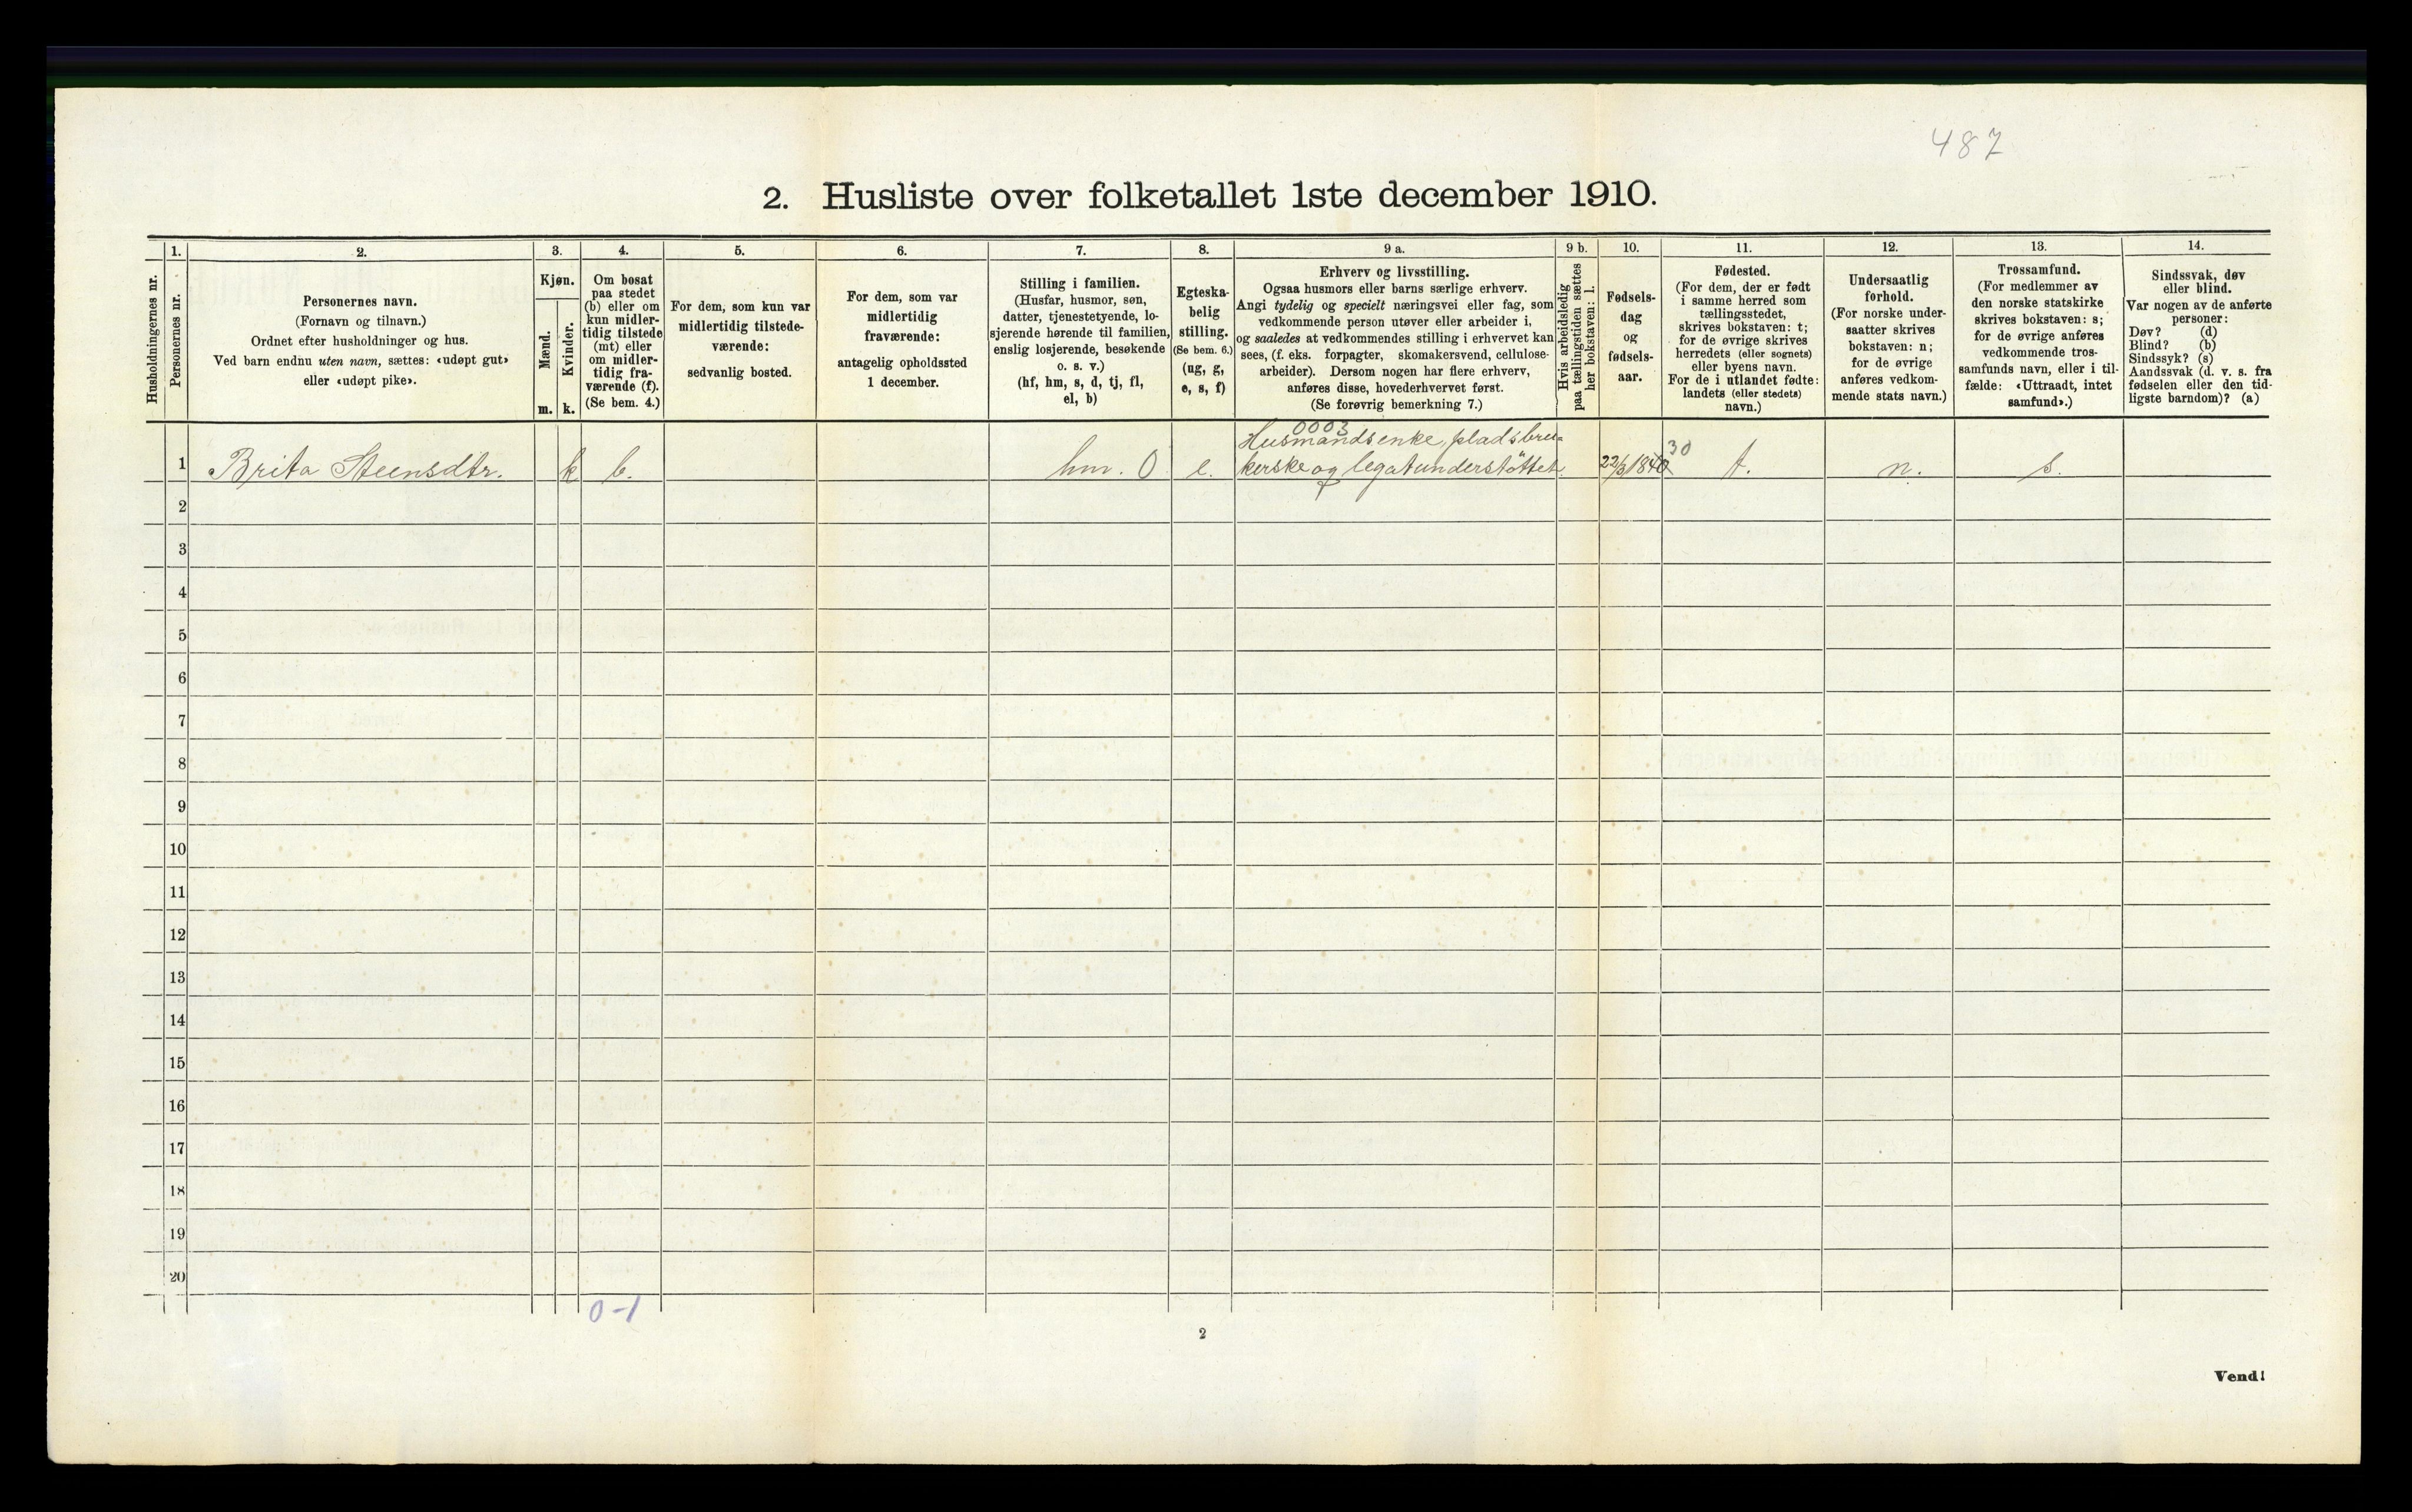 487
2. Husliste over folketallet 1ste december 1910.
Husholdningernes nr.
1.
Personernes nr.
2.
Personernes navn.
(Fornavn og tilnavn.)
Ordnet efter husholdninger og hus.
Ved barn endnu uten navn, sættes: «udøpt gut»
eller «udøpt pike».
3.
Kjøn.
Mænd.
Kvinder.
m. k.
4.
Om bosat
paa stedet
(b) eller om
kun midler-
tidig tilstede
(mt) eller
om midler-
tidig fra-
værende (f).
(Se bem. 4.)
5.
For dem, som kun var
midlertidig tilstede-
værende:
sedvanlig bosted.
6.
For dem, som var
midlertidig
fraværende:
antagelig opholdssted
1 december.
7.
Stilling i familien.
(Husfar, husmor, søn,
datter, tjenestetyende, lo-
sjerende hørende til familien,
enslig losjerende, besøkende
o. s. v.)
(hf, hm, s, d, tj, fl,
el, b)
8.
Egteska-
belig
stilling.
(Se bem. 6.)
(ug, g,
e, s, f)
9 a.
Erhverv og livsstilling.
Ogsaa husmors eller barns særlige erhverv.
Angi tydelig og specielt næringsvei eller fag, som
vedkommende person utøver eller arbeider i,
og saaledes at vedkommendes stilling i erhvervet kan
sees, (f. eks. forpagter, skomakersvend, cellulose-
arbeider). Dersom nogen har flere erhverv,
anføres disse, hovederhvervet først.
(Se forøvrig bemerkning 7.)
9 b.
Hvis arbeidsledig
paa tællingstiden sættes
her bokstaven: l.
10.
Fødsels-
dag
og
fødsels-
aar.
11.
Fødested.
(For dem, der er født
i samme herred som
tællingsstedet,
skrives bokstaven: t;
for de øvrige skrives
herredets (eller sognets)
eller byens navn.
For de i utlandet fødte:
landets (eller stedets)
navn.)
12.
Undersaatlig
forhold.
(For norske under-
saatter skrives
bokstaven: n;
for de øvrige
anføres vedkom-
mende stats navn.)
13.
Trossamfund.
(For medlemmer av
den norske statskirke
skrives bokstaven: s;
for de øvrige anføres
vedkommende tros-
samfunds navn, eller i til-
fælde: «Uttraadt, intet
samfund».)
14.
Sindssvak, døv
eller blind.
Var nogen av de anførte
personer:
Døv? (d)
Blind? (b)
Sindssyk? (s)
Aandssvak (d. v. s. fra
fødselen eller den tid-
ligste barndom)? (a)
0003
Husmandsenke, pladsbru-
1 Brita Steensdtr. k b. hm. 0 e. kerske og legatunderstöttet 22/3 1840 30 t. n. s.
2
3
4
5
6
7
8
9
10
11
12
13
14
15
16
17
18
19
20
0-1
2
Vend!